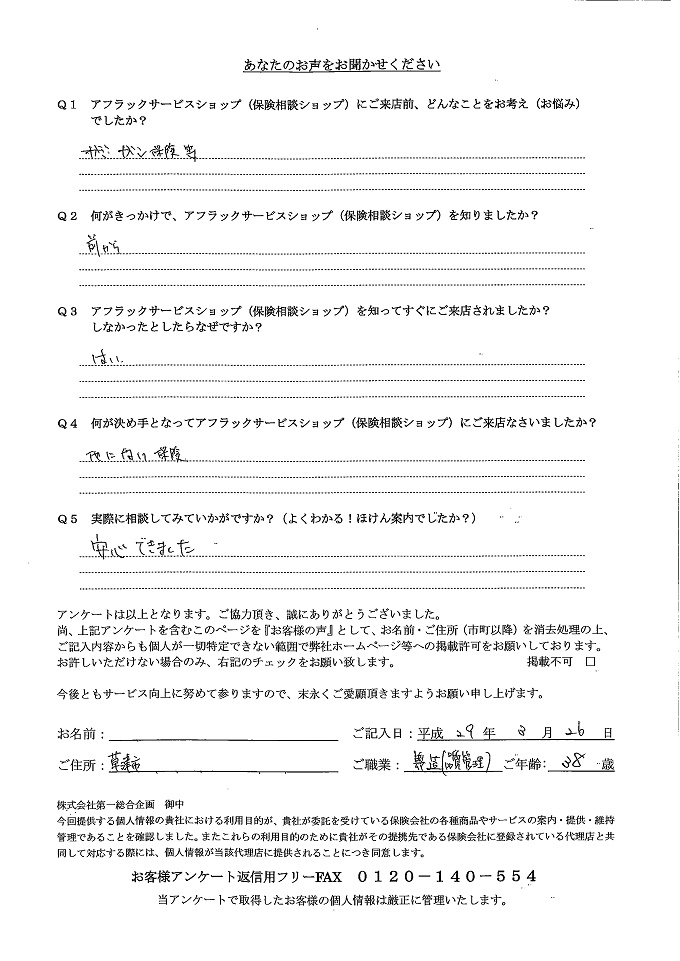 あなたのお声をお聞かせください
Q1 アフラックサービスショップ（保険相談ショップ）にご来店前、どんなことをお考え（お悩み）
でしたか？
ガン保険等
Q2 何がきっかけで、アフラックサービスショップ（保険相談ショップ）を知りましたか？
前から
Q3 アフラックサービスショップ（保険相談ショップ）を知ってすぐにご来店されましたか？
しなかったとしたらなぜですか？
はい
Q4 何が決め手となってアフラックサービスショップ（保険相談ショップ）にご来店なさいましたか？
他にない保険
Q5 実際に相談してみていかがですか？（よくわかる！ほけん案内でしたか？）
安心できました
アンケートは以上となります。ご協力頂き、誠にありがとうございました。
尚、上記アンケートを含むこのページを『お客様の声』として、お名前・ご住所（市町以降）を消去処理の上、
ご記入内容からも個人が一切特定できない範囲で弊社ホームページ等への掲載許可をお願いしております。
お許しいただけない場合のみ、右記のチェックをお願い致します。 掲載不可 □
今後ともサービス向上に努めて参りますので、末永くご愛顧頂きますようお願い申し上げます。
お名前： ご記入日：平成 29 年 3 月 26 日
ご住所：草津市 ご職業：製造（品質管理） ご年齢：38 歳
株式会社第一総合企画 御中
今回提供する個人情報の貴社における利用目的が、貴社が委託を受けている保険会社の各種商品やサービスの案内・提供・維持
管理であることを確認しました。またこれらの利用目的のために貴社がその提携先である保険会社に登録されている代理店と共
同して対応する際には、個人情報が当該代理店に提供されることにつき同意します。
お客様アンケート返信用フリーFAX 0120－140－554
当アンケートで取得したお客様の個人情報は厳正に管理いたします。